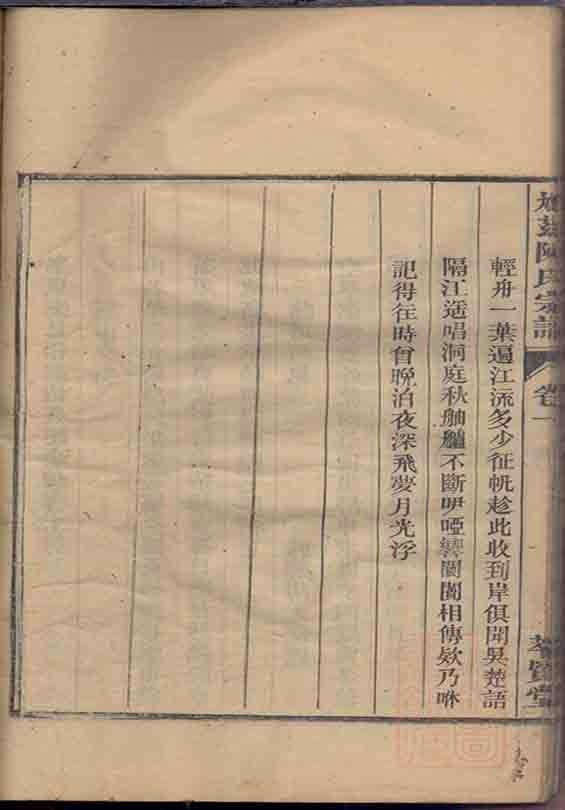 陳氏宗譜 卷一
輕舟一葉遍江流多少征帆趁此收到岸俱聞吳楚語
隔江遥唱洞庭秋舳艫不斷咿啞響闤闠相傳欸乃咻
記得往時曾晚泊夜深飛夢月光浮